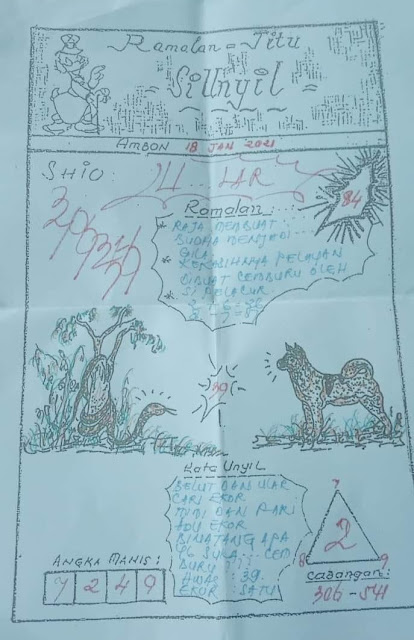 Ramalan - Jitu
Si Unyil
AMBON 18 JAN 2021
SHIO:
ULAR
84
Ramalan:
* RAJA MEMBUAT
BUDHA MENJADI
GILA
* KEKASIHNYA PELAYAN
DIBUAT CEMBURU OLEH
* SI PELACUR
89
Kata Unyil
BELUT DAN ULAR
CARI EKOR
MIMI DAN PARI
ADU EKOR
BINATANG APA
YG SUKA... CEM
BURU ???
AWAS : 39
EKOR SATU
ANGKA MANIS:
7 2 4 9
7
2
8 9
CABANGAN:
306 - 54